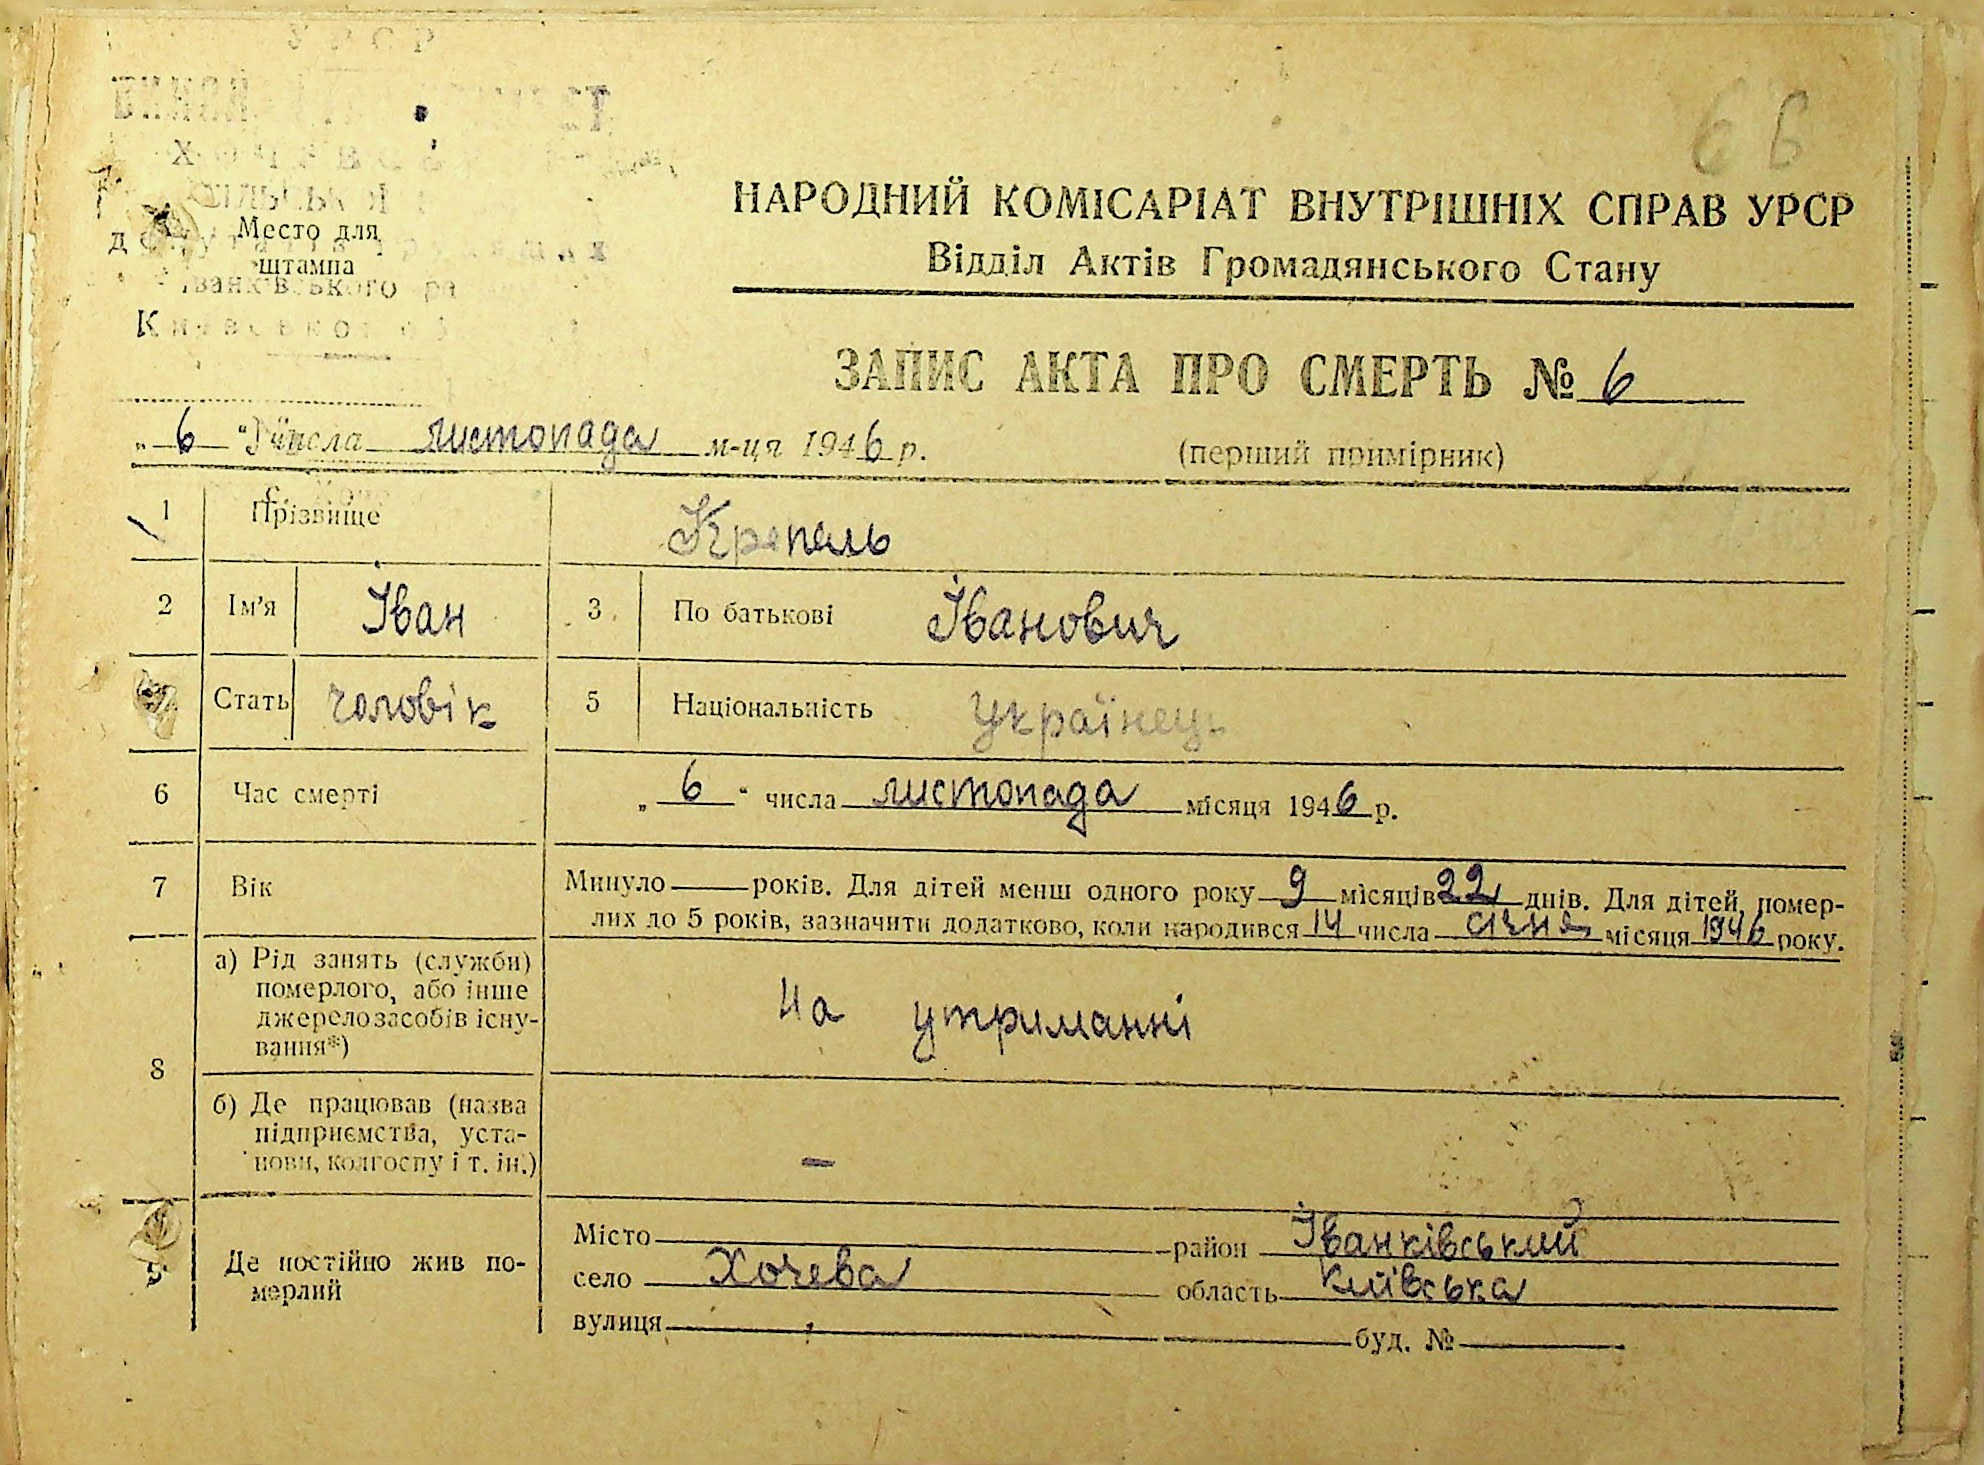 УРСР
6 Б
СІЛЬСЬКА
Место для
штампа
Іванківського
Київської
НАРОДНИЙ КОМІСАРІАТ ВНУТРІШНІХ СПРАВ УРСР
Відділ Актів Громадянського Стану
ЗАПИС АКТА ПРО СМЕРТЬ № 6
„ 6 “ числа листопада м-ця 1946 р.
(перший примірник)
1 Прізвище
2 Ім’я Іван 3 По батькові Іванович
Стать чоловік 5 Національність Українець
6 Час смерті „ 6 “ числа листопада місяця 1946 р.
7 Вік Минуло — років. Для дітей менш одного року 9 місяців 22 днів. Для дітей, помер-
лих до 5 років, зазначити додатково, коли народився 14 числа січня місяця 1946 року.
8 а) Рід занять (служби)
померлого, або інше
джерело засобів існу-
вання*)
На утриманні
б) Де працював (назва
підприємства, уста-
нови, колгоспу і т. ін.)
—
Де постійно жив по-
мерлий
Місто район Іванківський
село Хочева область Київська
вулиця буд. №